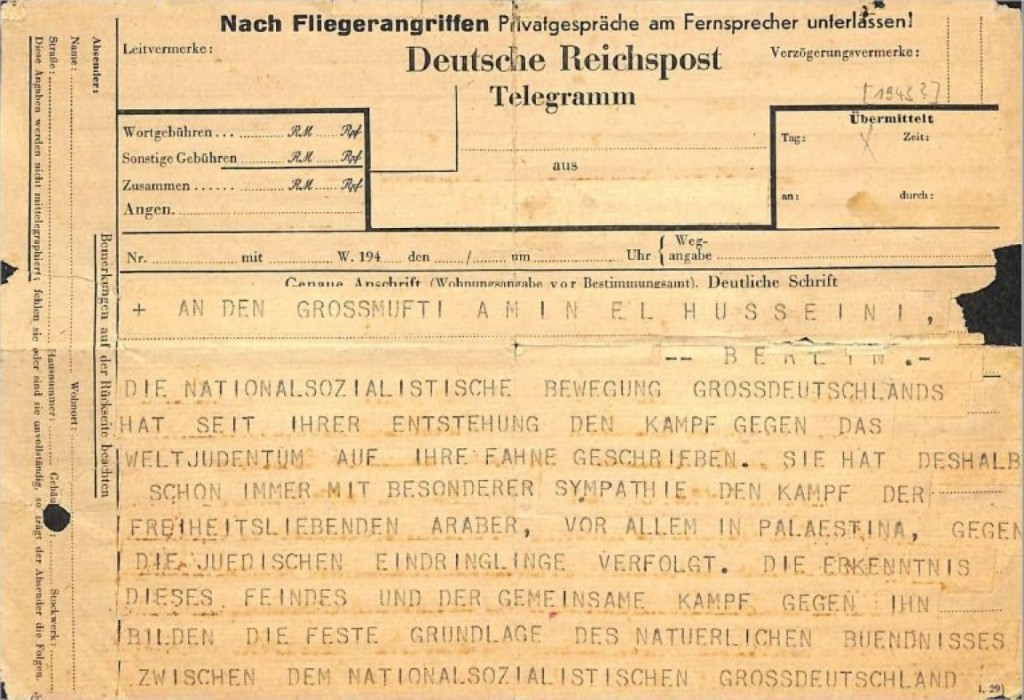 Nach Fliegerangriffen Privatgespräche am Fernsprecher unterlassen!
Leitvermerke:
Deutsche Reichspost
Verzögerungsvermerke:
Telegramm
[1943?]
Übermittelt
Tag: Zeit:
an: durch:
Wortgebühren ... RM Rpf
Sonstige Gebühren RM Rpf
Zusammen ...... RM Rpf
Angen.
aus
Nr. mit W. 194 den / um Uhr { Weg-
angabe
Genaue Anschrift (Wohnungsangabe vor Bestimmungsamt). Deutliche Schrift
+ AN DEN GROSSMUFTI AMIN EL HUSSEINI,
-- BERLIN.-
DIE NATIONALSOZIALISTISCHE BEWEGUNG GROSSDEUTSCHLANDS
HAT SEIT IHRER ENTSTEHUNG DEN KAMPF GEGEN DAS
WELTJUDENTUM AUF IHRE FAHNE GESCHRIEBEN. SIE HAT DESHALB
SCHON IMMER MIT BESONDERER SYMPATHIE DEN KAMPF DER
FREIHEITSLIEBENDEN ARABER, VOR ALLEM IN PALAESTINA, GEGEN
DIE JUEDISCHEN EINDRINGLINGE VERFOLGT. DIE ERKENNTNIS
DIESES FEINDES UND DER GEMEINSAME KAMPF GEGEN IHN
BILDEN DIE FESTE GRUNDLAGE DES NATUERLICHEN BUENDNISSES
ZWISCHEN DEM NATIONALSOZIALISTISCHEN GROSSDEUTSCHLAND
Bemerkungen auf der Rückseite beachten
Absender:
Name: Wohnort:
Straße: Hausnummer: Gebäude: Stockwerk:
Diese Angaben werden nicht mittelegraphiert; fehlen sie oder sind sie unvollständig, so trägt der Absender die Folgen.